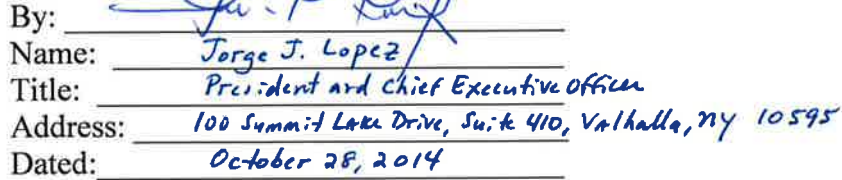 By:
Name: Jorge J. Lopez
Title: President and Chief Executive Officer
Address: 100 Summit Lake Drive, Suite 410, Valhalla, NY 10595
Dated: October 28, 2014